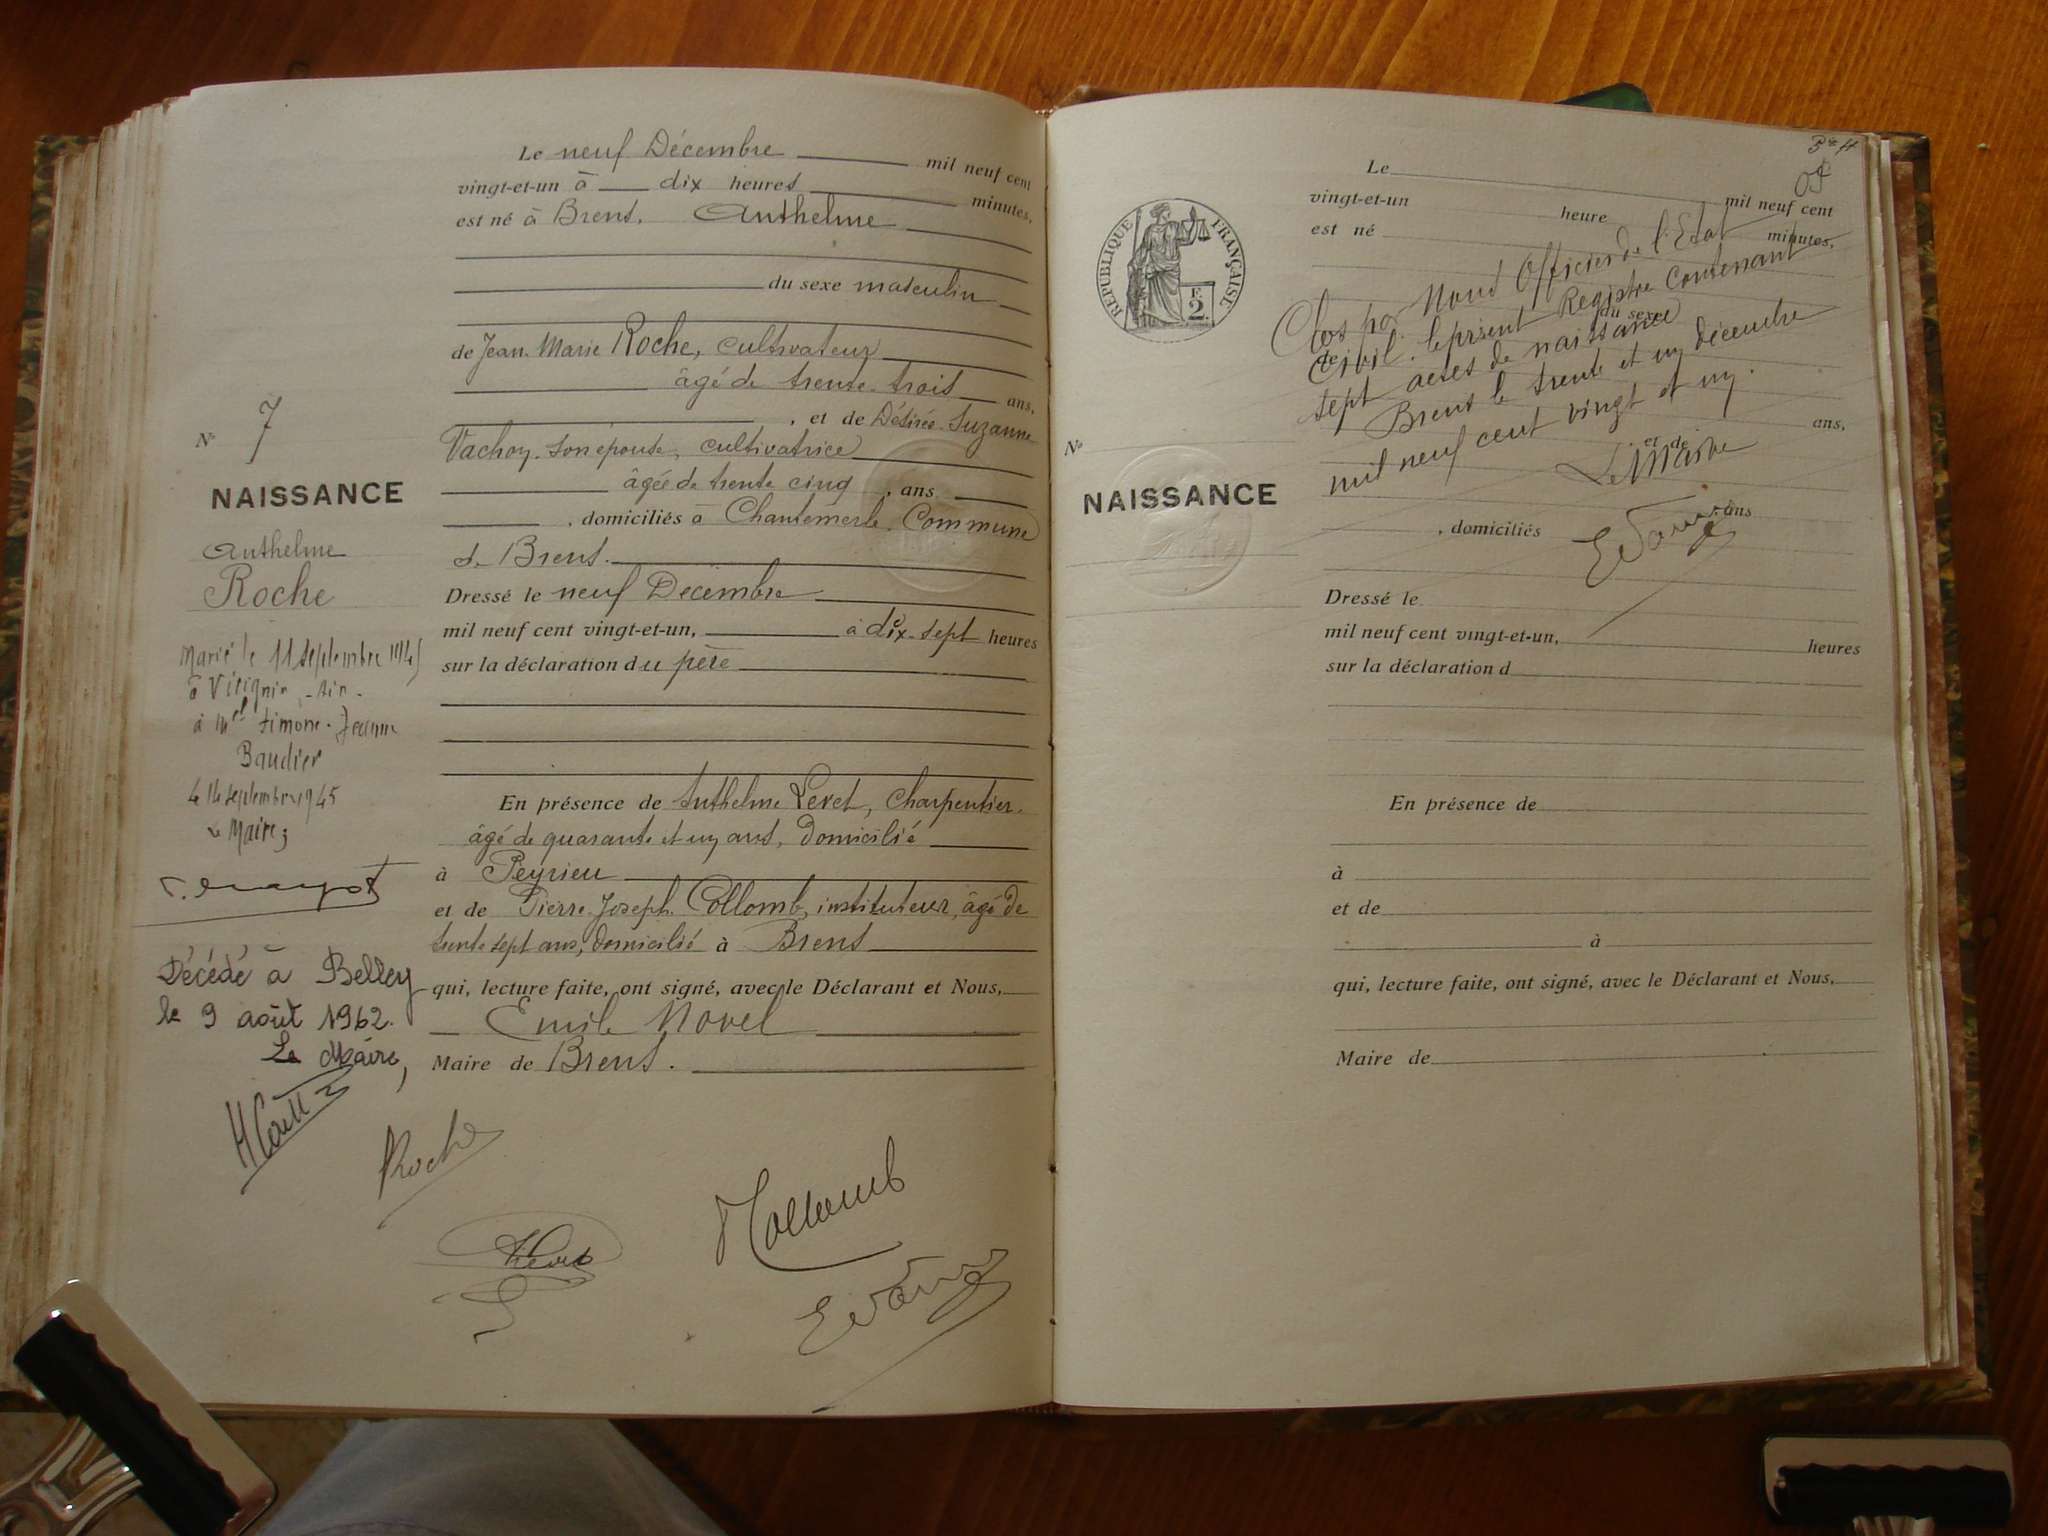 Le neuf Décembre mil neuf cent
vingt-et-un à dix heures minutes,
est né à Brens, Anthelme
du sexe masculin
de Jean-Marie Roche, cultivateur
âgé de trente-trois ans,
, et de Désirée Suzanne
Vachoy. son épouse, cultivatrice
âgée de trente cinq , ans
, domiciliés à Chantemerle. Commune
de Brens.
Dressé le neuf Décembre
mil neuf cent vingt-et-un, à dix-sept heures
sur la déclaration du père
En présence de Anthelme Levet, Charpentier
âgé de quarante et un ans, domicilié
à Peyrieu
et de Pierre Joseph Collomb, instituteur, âgé de
trente sept ans, domicilié à Brens
qui, lecture faite, ont signé, avec le Déclarant et Nous,
Emile Novel
Maire de Brens.
No 7
NAISSANCE
Anthelme
Roche
Marié le 11 septembre 1945
à Virignin - Ain -
à Mel Simone-Jeanne
Baudier
le 14 septembre 1945
Le Maire
Décédé à Belley
le 9 août 1962.
Le Maire,
Roche
Collomb
RÉPUBLIQUE FRANÇAISE
F.
2.
No
NAISSANCE
Le mil neuf cent
vingt-et-un heure minutes,
est né
du sexe
de
ans,
, et de
ans
, domiciliés
Clos par Nous Officier de l'Etat
Civil. le présent Registre Contenant
sept actes de naissance
Brens le trente et un décembre
mil neuf cent vingt et un.
Le Maire
Dressé le
mil neuf cent vingt-et-un, heures
sur la déclaration d
En présence de
à
et de
à
qui, lecture faite, ont signé, avec le Déclarant et Nous,
Maire de